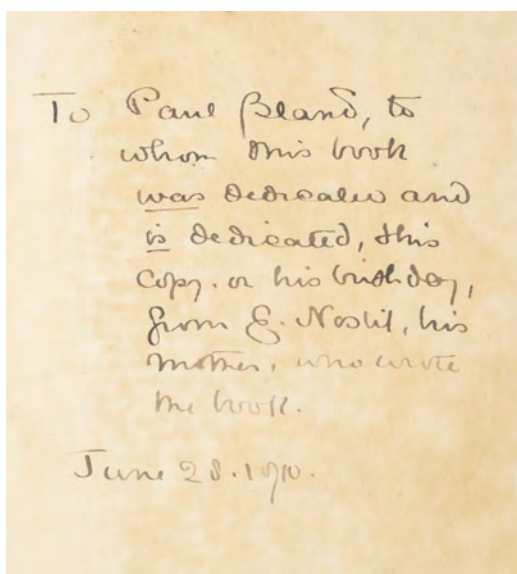 To Paul Bland, to
whom this book
was dedicated and
is dedicated, this
copy. on his birthday,
from E. Nesbit, his
mother, who wrote
the book.
June 28. 1910.